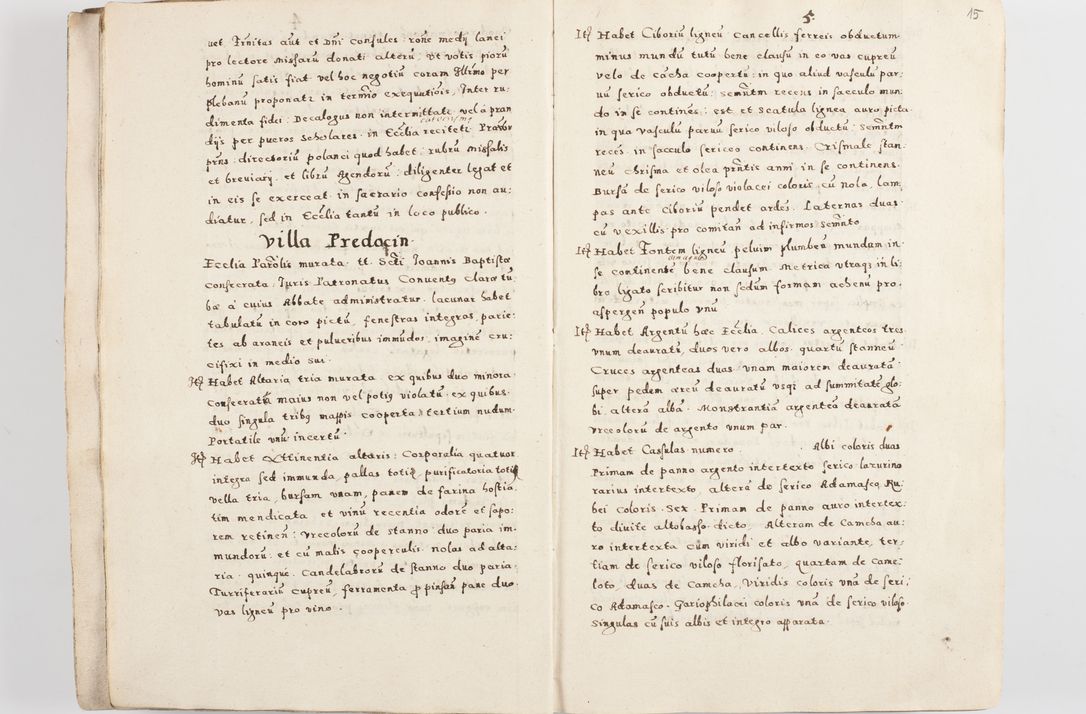 uet. Trinitas aut et Dni consules: rone medij lanei
pro lectore missarũ donati alterũ, Vt votis piorũ
hominũ satis fiat vel hoc negotiũ coram Illrmo per
plebanũ proponatr in termio exequutiois, Inter ru-
dimenta fidei: Decalogus non intermittate vel a pran
dijs per pueros scholares in Ecclia reciteti
prns: directoriũ polanci quod habet: rubrũ missalis
et breviarij et librũ Agendorũ: diligenter legat et
in eis se exerceat. in sacrario confessio non au-
diatur, sed in Ecclia tantũ in loco publico.
Villa Predocin.
Ecclia Parolis murata tt. Scti Ioannis Baptistæ
Consecrata: Iuris Patronatus Conventq Claro tũ:
bæ à cuius Abbate administratur. lacunar habet
tabulatũ in coro pictũ, fenestras integras, parie-
tes ab araneis et pulueribus immũdos, imaginẽ cru:
cifixi in medio sui.
Itẽ Habet Altaria tria murata ex quibus duo minora
Consecratũ maius non vel potiq violatũ ex quibus
duo singula tribq mappis cooperta: tertium nudum.
Portatile vnũ incertũ.
Itẽ Habet Attinentia altaris: Corporalia quatuor
integra sed immunda, pallas totiq, purificatoria totiq
vella tria, bursam vnam, panem de farina hostia
tim mendicata et vinũ recentia odorẽ et sapo:
rem retinen: vrceolorũ de stanno duo paria im.
mundorũ et cũ malis cooperculis. nolas ad alta:
ria quinque. Candelabrorũ de stanno duo paria:
Turriferariũ cupreũ, ferramenta p pinsãn pane duo
vas ligneũ pro vino.
5.
15
Itẽ Habet Ciboriũ ligneũ cancellis ferreis obductum
minus mundũ tutũ bene clausũ in eo vas cupreũ
velo de cacha coopertũ: in quo aliud vasculũ par:
uũ serico obductũ: semñtm recens in sacculo mun:
do in se contineñ: est et scatula lignea auro picta
in qua vasculũ paruũ serico viloso obductũ: semñtm
recẽs in sacculo sericeo continens. Crismale stan:
neũ chrisma et olea pñtis anni in se continens.
Bursã de serico viloso violacei coloris cũ nola, lam,
pas ante ciboriũ pendet ardẽs. Laternas duas
cũ vexillis pro comitañ ad infirmos semñto
Itẽ Habet Fontem ligneũ peluim plumbeũ mundum in
se continente bene clausum. Metrica vtraqz in li:
bro ligato scribitur non sedum formam ahenũ pro
aspergeñ populo vnũ
Itẽ Habet Argentũ hæc Ecclia, Calices argenteos tres
vnum deauratũ, duos vero albos. quartũ stanneũ.
Cruces argenteas duas, vnam maiorem deauratã
super pedem æreũ deauratũ vsqz ad summitatẽ glo:
bi. alterã albã. Monstrantiã argenteã deauratã
vrceolorũ de argento vnum par.
Itẽ Habet Cassulas numero . Albi coloris duas
Primam de panno argento intertexto serico lazurino
rarius intertexto, alterã de serico Adamasco, Ru-
bei Coloris. Sex. Primam de panno auro intertex:
to divite altobasso dicto, Alteram de Camcha au:
ro intertexta cum viridi et albo variante, ter:
tiam de serico viloso florisato, quartam de came:
loto, duas de Camcha, Viridis coloris vnã de seri:
co Adamasco. Gariophilacei coloris vnã de serico viloso.
Singulas cũ suis albis et integro apparata.